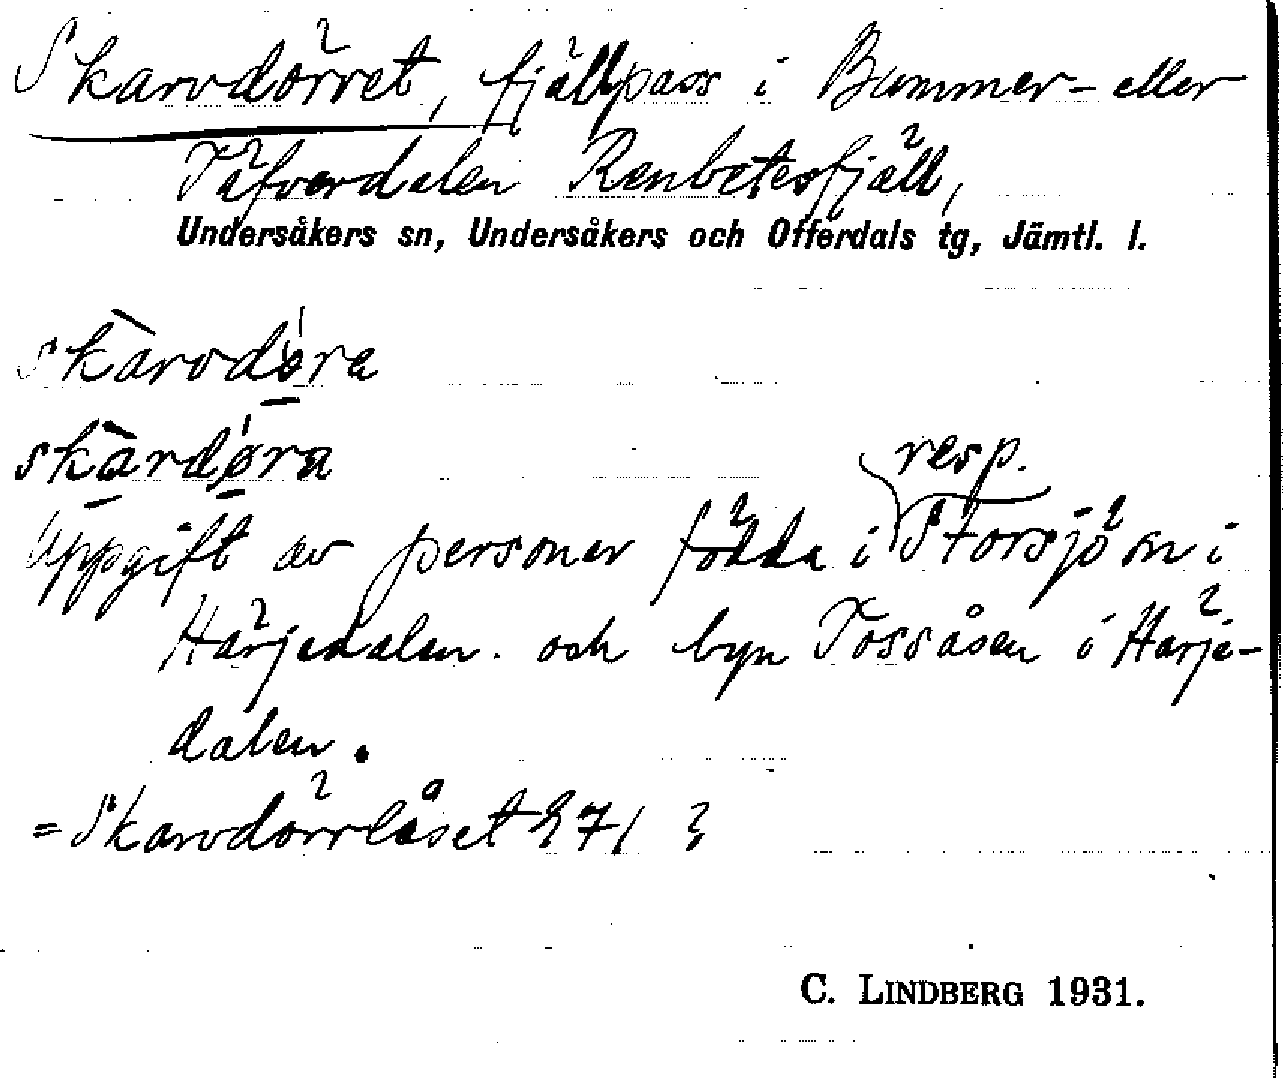 Skarvdörret, fjällpass i Bummer- eller
Täfverdalen Renbetesfjäll,
Undersåkers sn, Undersåkers och Offerdals tg, Jämtl. l.
skàrvdø̀ra
skàrdø̀ra
resp.
Uppgift av personer födda i Storsjö sn i
Härjedalen. och byn Tossåsen i Härje-
dalen.
= Skarvdörrlåset 271 ?
C. LINDBERG 1931.